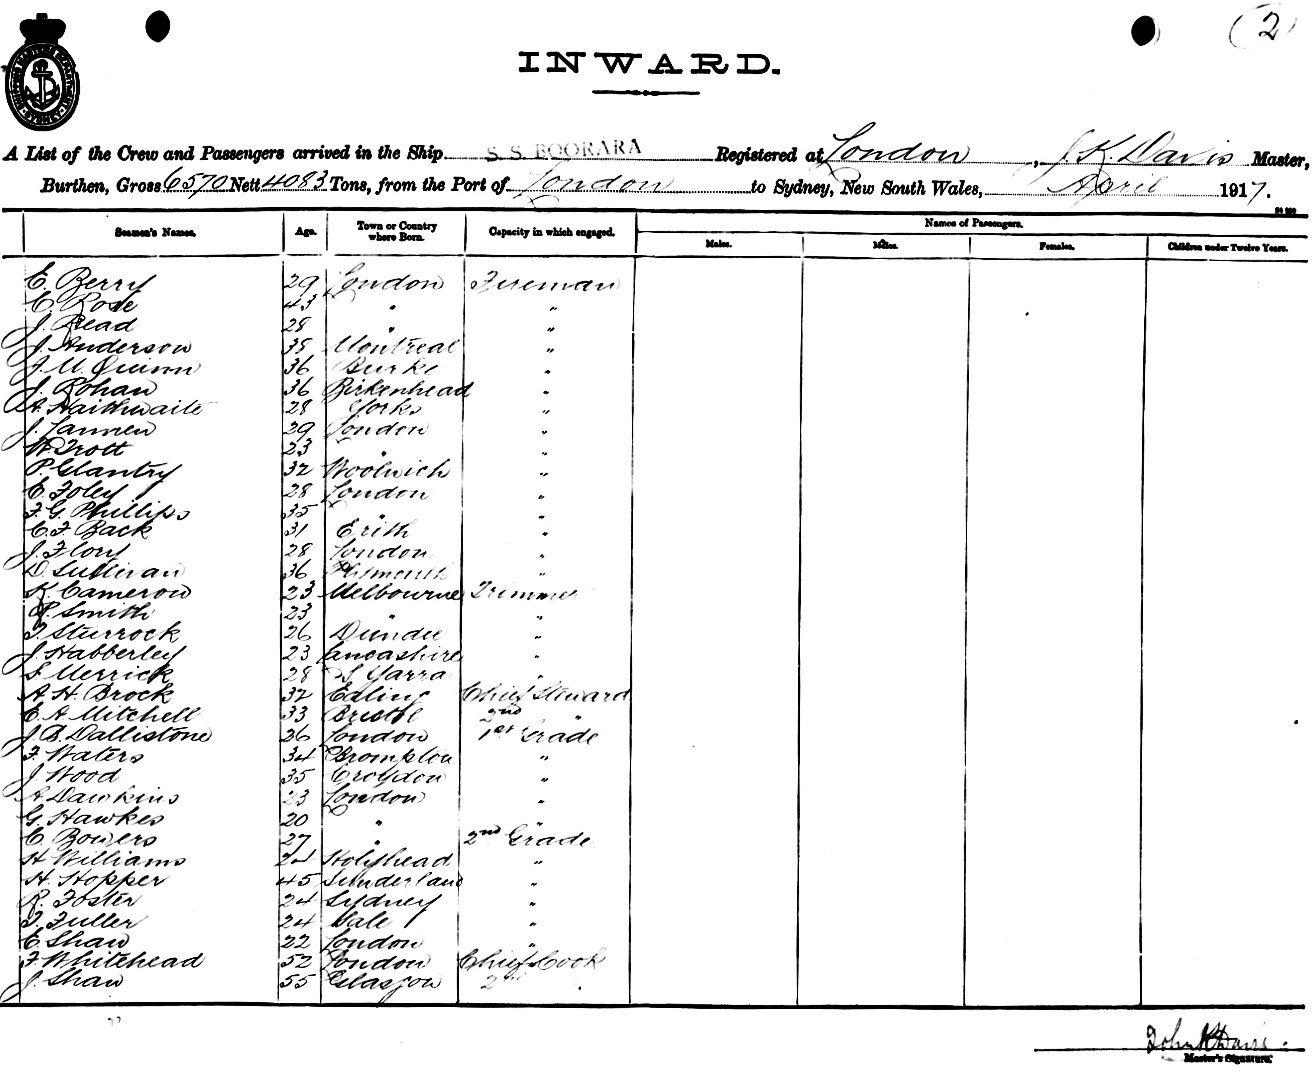 2
INWARD.
A List of the Crew and Passengers arrived in the Ship S. S. BOORARA Registered at London, J. K. Davis Master,
Burthen, Gross 6570 Nett 4083 Tons, from the Port of London to Sydney, New South Wales, April 1917.
Seamen's Names. Age. Town or Country where Born. Capacity in which engaged. Names of Passengers.
Males. Males. Females. Children under Twelve Years.
E. Berry 29 London Fireman
C. Rose 43 " "
J. Read 28 " "
J. Anderson 38 Montreal "
J. M. Quinn 36 Burke "
J. Rohan 36 Birkenhead "
A. Haithwaite 28 Yorks "
J. Lannen 29 London "
W. Trott 23 " "
P. Glantry 32 Woolwich "
E. Foley 28 London "
F. G. Phillips 35 " "
C. F. Back 31 Erith "
J. Flory 28 London "
D. Sullivan 36 "
K. Cameron 23 Melbourne Trimmer
R. Smith 23 " "
T. Sturrock 26 Dundee "
J. Habberley 23 Lancashire "
S. Merrick 28 S Yarra "
A. H. Brock 32 Ealing Chief Steward
E. A. Mitchell 33 Bristol 2nd "
J. B. Dallistone 26 London 1st Grade
F. Waters 34 Brompton "
J. Wood 35 Croydon "
A Dawkins 23 London "
G. Hawkes 20 " "
C. Bowers 27 " 2nd Grade
H Williams 24 Holyhead "
H. Hopper 45 Sunderland "
R. Foster 24 Sydney "
T. Fuller 24 Sale "
E. Shaw 22 London "
F. Whitehead 52 London Chief Cook
J. Shaw 55 Glasgow 2nd "
John K Davis
Master's Signature.